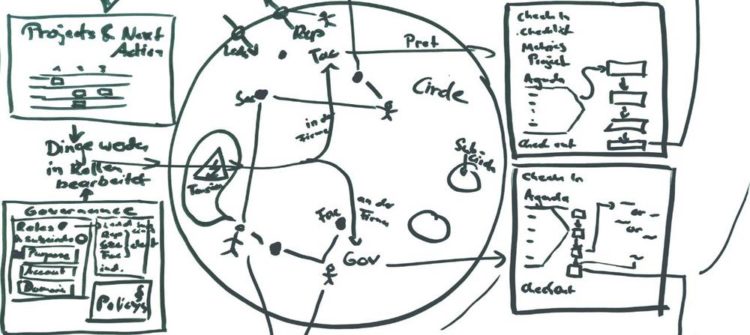 Projects & Next
Action
Dinge werden
in Rollen
bearbeitet
Governance
Roles
Purpose
Account
Domains
Lead
Rep
Sec
Fac
ind.
elect
§
Policys
Lead
Rep
Tac
Prot
Circle
Sec
in der
Firma
Tension
an der
Firma
Fac
Gov
Sub-
Circle
Check In
Checklist
Metrics
Project
Agenda
Check out
Check In
Agenda
or
or
Checkout